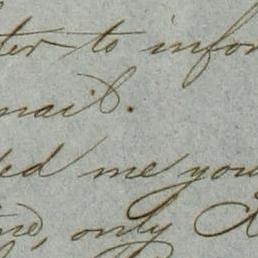 ter to infor
mail.
ed me you
nd, only